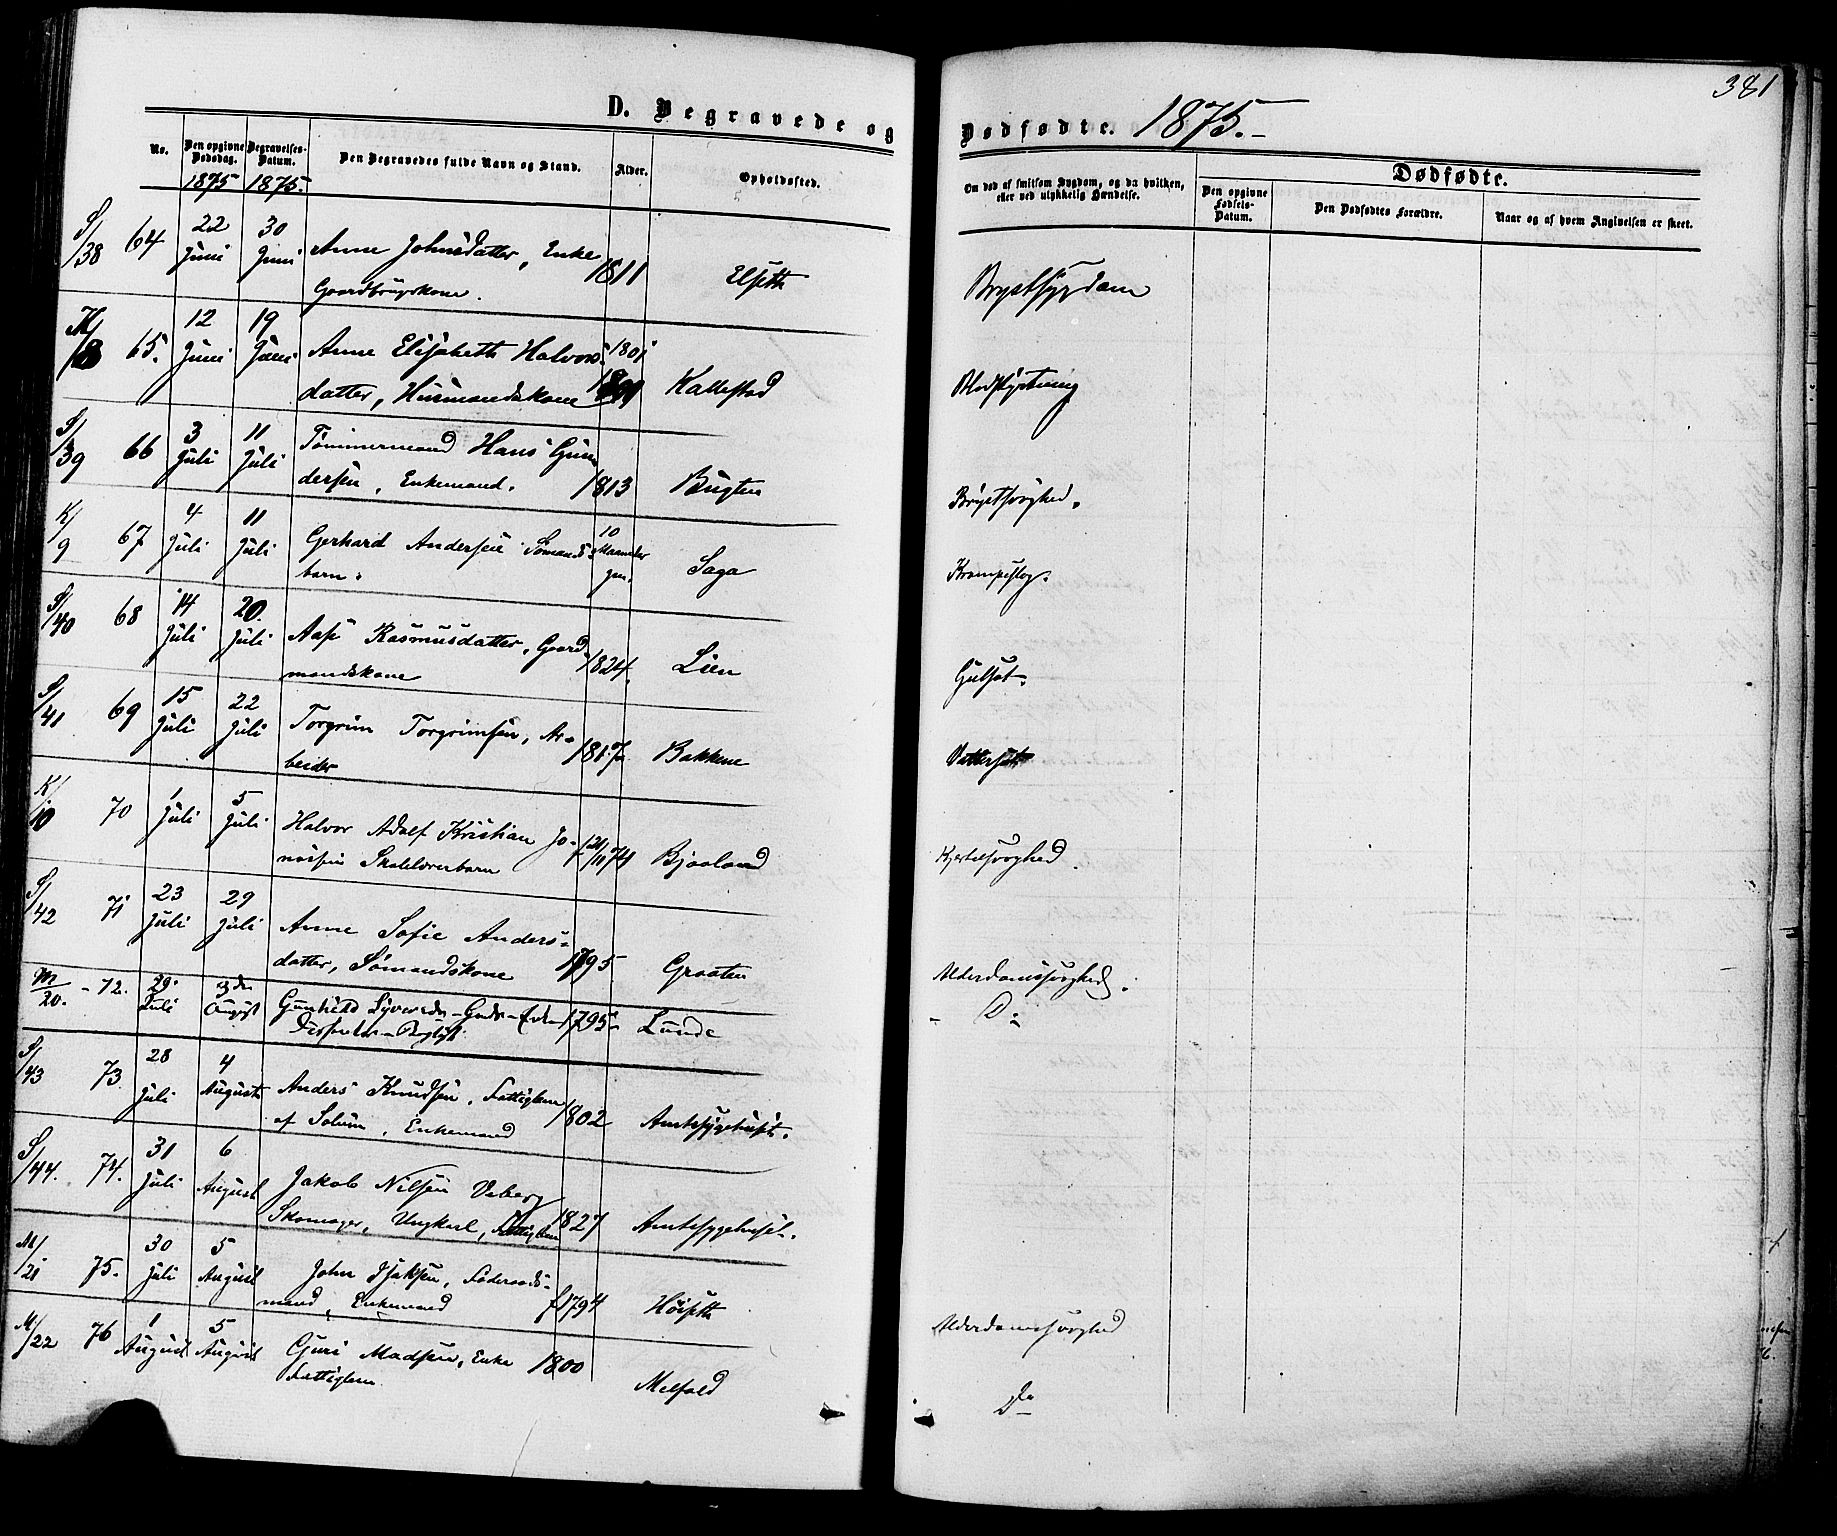 381
D. Begravede og
Dødfødte. 1875.-
No.
Den opgivne Dødsdag.
1875
Begravelses-Datum.
1875.
Den Begravedes fulde Navn og Stand.
Alder.
Opholdssted.
Om død af smitsom Sygdom, og da hvilken, eller ved ulykkelig Hændelse.
Dødfødte.
Den opgivne Fødsels-Datum.
Den Dødfødtes Forældre.
Naar og af hvem Angivelsen er skeet.
S/38 64 22 Juni 30 Juni Anne Johnsdatter, Enke 1811 Elseth Brystsygdom
Gaardbrugskone.
K/8 65. 12 Juni 19 Juni Anne Elisabeth Halvors- 1801 Kallestad Blodstyrtning
datter, Husmandskone
S/39 66 3 Juli 11 Juli Tømmermand Hans Gun
dersen, Enkemand. 1813 Bugten Brystsvaghed.
K/9 67 4 Juli 11 Juli Gerhard Andersen Sømands- 10 Maaneder gm. Saga Krampeslag.
barn.
S/40 68 14 Juli 20. Juli Aase Rasmusdatter, Gaard 1824. Lien Gulsot.
mandskone
S/41 69 15 Juli 22 Juli Torgrim Torgrimsen, Ar- 1817 Bakkene Vattersot
beider
K/10 70 1 Juli 5 Juli Halvor Adolf Kristian Jo- 74 Bjaaland Kjertelsvaghed.
nassen Skolelærerbarn
S/42 71 23 Juli 29 Juli Anne Sofie Anders-
datter, Sømandskone 1795 Graaten Alderdomssvaghed.
M/20. - 72. 29. Juli 3die August Gunhild Syversdr- 1795 Lunde - Do
S/43 73 28 Juli 4 August Anders Knudsen, Fattiglem 1802 Amtssygehuset.
af Solum, Enkemand
S/44. 74. 31 Juli 6 August Jakob Nilsen Veberg
Skomager, Ungkarl, Fattiglem 1827 Amtssygehuset.
M/21 75. 30 Juli 5 August John Isaksen, Føderaads-
mand, Enkemand 1794 Høiseth Alderdomssvaghed
M/22 76 1 August 5 August Guri Madsen, Enke 1800 Melfald Do
Fattiglem